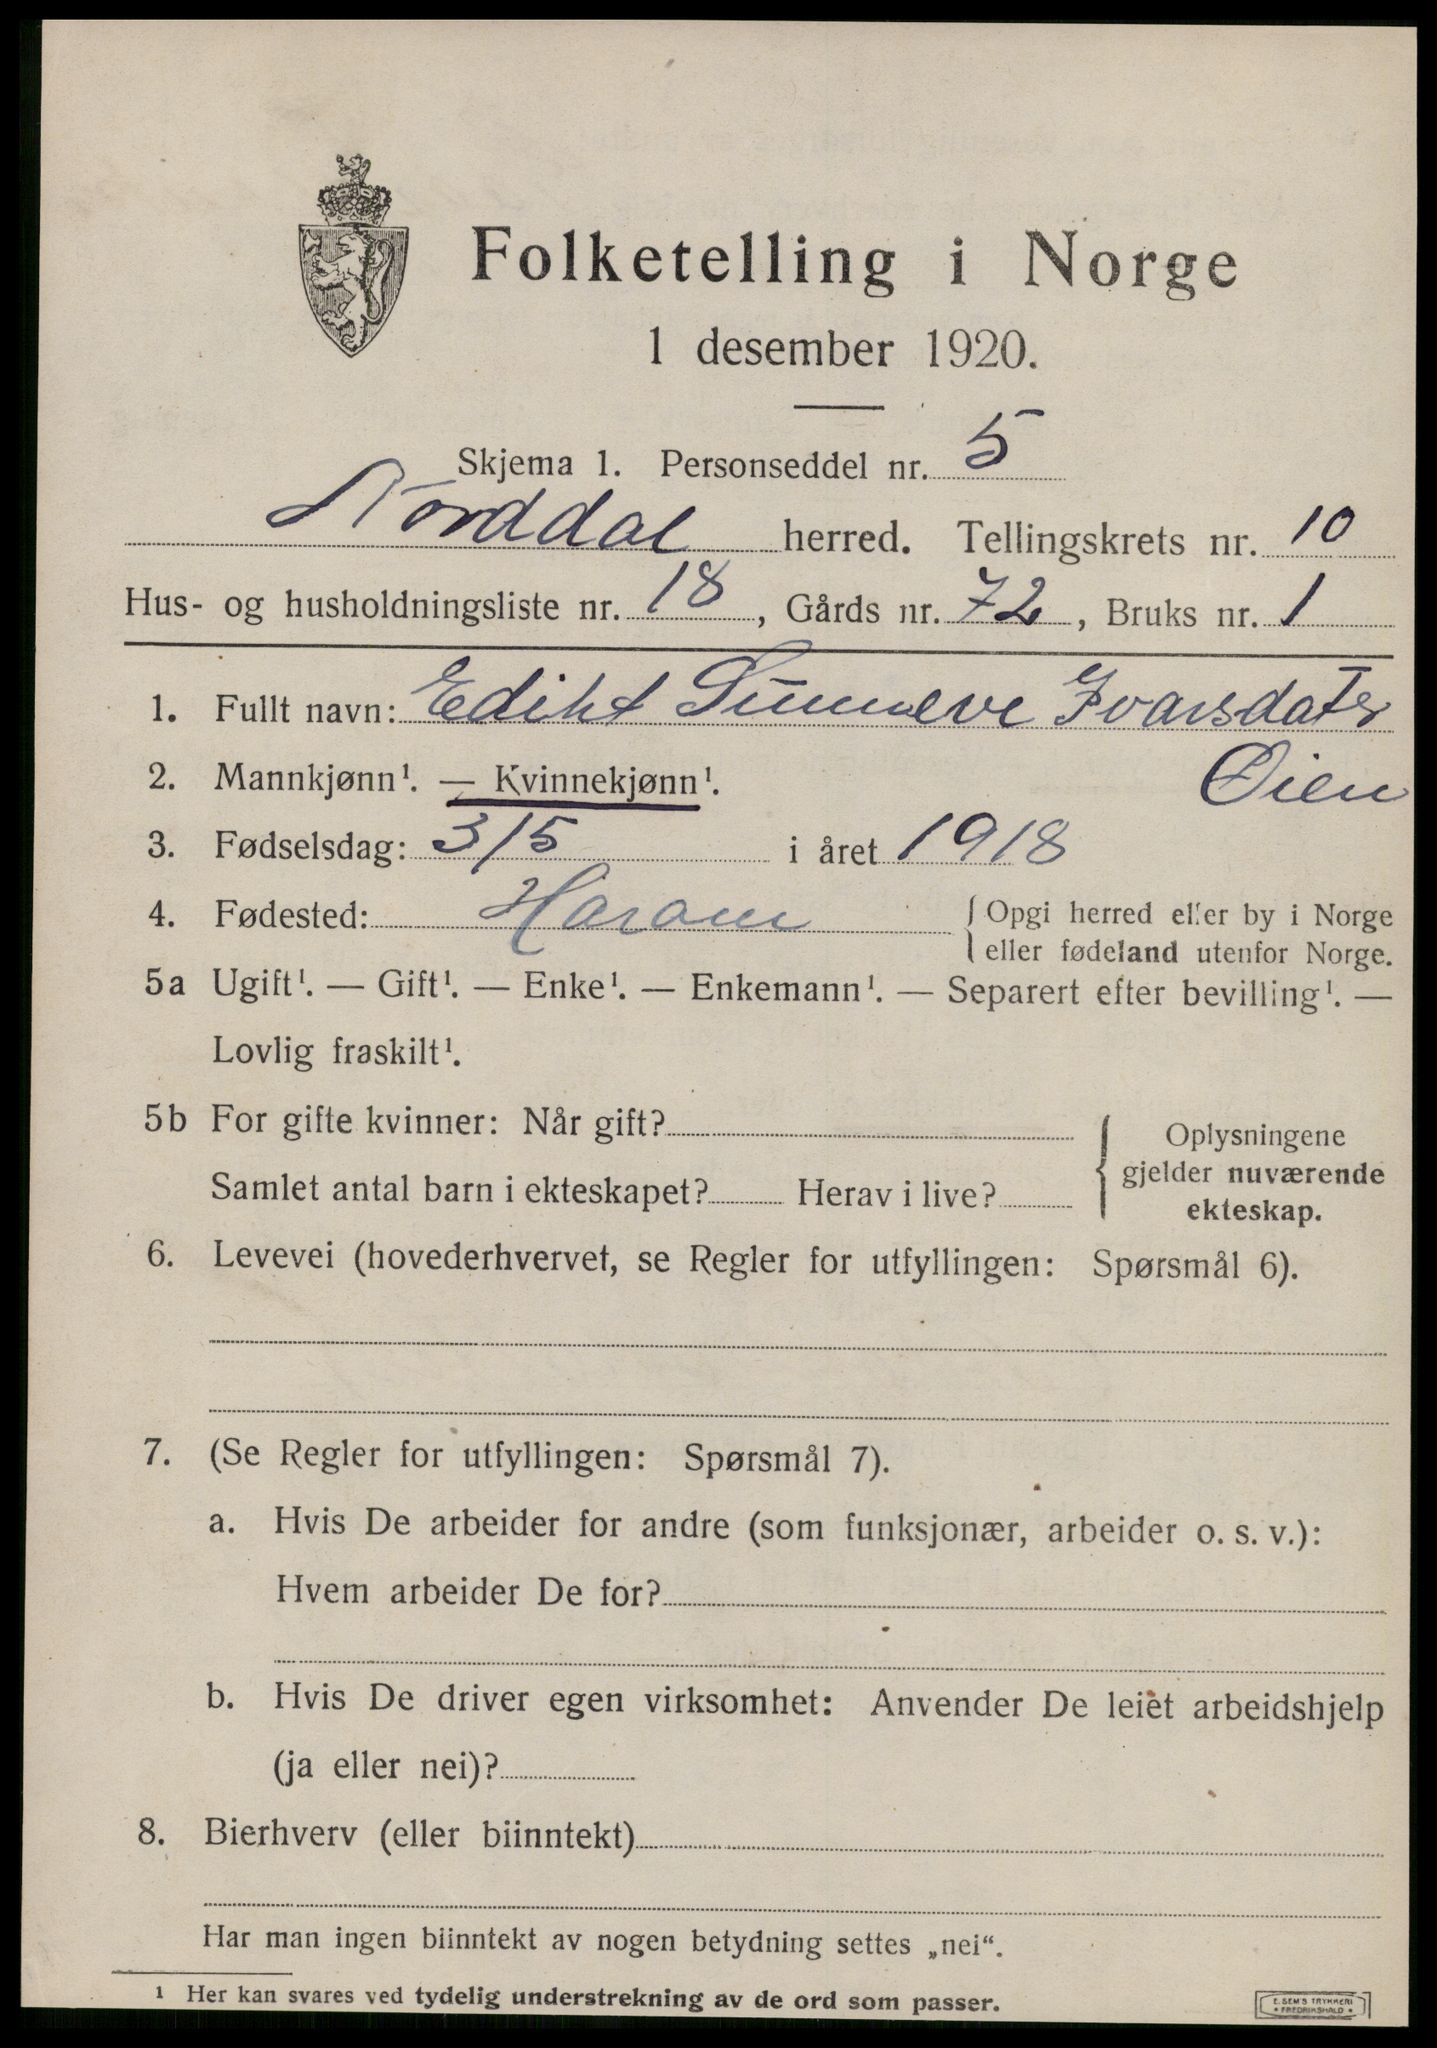 Folketelling i Norge
1 desember 1920.
Skjema 1. Personseddel nr. 5
Norddal herred. Tellingskrets nr. 10
Hus- og husholdningsliste nr. 18, Gårds nr. 72, Bruks nr. 1
1. Fullt navn: Ediht Sunneve Ivarsdater
Øien
2. Mannkjønn¹. — Kvinnekjønn¹.
3. Fødselsdag: 3/5 i året 1918
4. Fødested: Haram { Opgi herred eller by i Norge
eller fødeland utenfor Norge.
5a Ugift¹. — Gift¹. — Enke¹. — Enkemann¹. — Separert efter bevilling¹. —
Lovlig fraskilt¹.
5b For gifte kvinner: Når gift?
Samlet antal barn i ekteskapet? Herav i live?
Oplysningene
gjelder nuværende
ekteskap.
6. Levevei (hovederhvervet, se Regler for utfyllingen: Spørsmål 6).
7. (Se Regler for utfyllingen: Spørsmål 7).
a. Hvis De arbeider for andre (som funksjonær, arbeider o. s. v.):
Hvem arbeider De for?
b. Hvis De driver egen virksomhet: Anvender De leiet arbeidshjelp
(ja eller nei)?
8. Bierhverv (eller biinntekt)
Har man ingen biinntekt av nogen betydning settes „nei“.
¹ Her kan svares ved tydelig understrekning av de ord som passer.
E. SEM'S TRYKKERI
• FREDRIKSHALD •